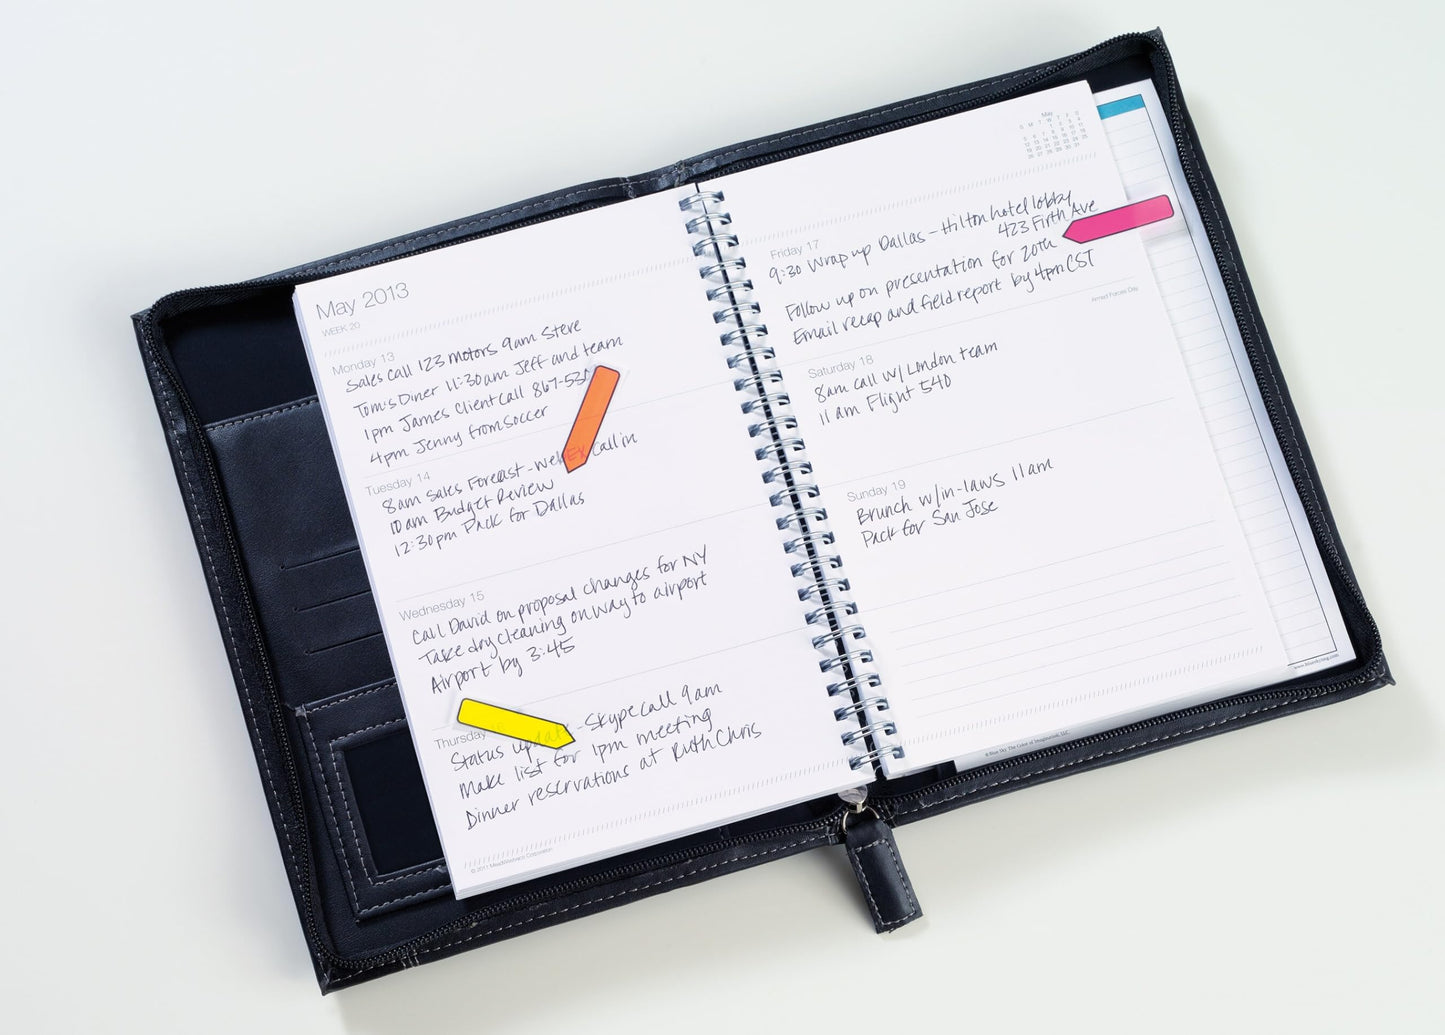 May 2013
WEEK 20
Monday 13
Sales Call 123 motors 9am Steve
Tom's Diner 11:30am Jeff and team
1pm James Client call 867-53
4pm Jenny from soccer
Tuesday 14
8am Sales Forecast - WebEx Call in
10am Budget Review
12:30pm Pack for Dallas
Wednesday 15
Call David on proposal changes for NY
Take dry cleaning on way to airport
Airport by 3:45
Thursday
Status update - Skype call 9am
Make list for 1pm meeting
Dinner reservations at Ruth Chris
© 2011 MeadWestvaco Corporation
May
S M T W T F S
1 2 3 4
5 6 7 8 9 10 11
12 13 14 15 16 17 18
19 20 21 22 23 24 25
26 27 28 29 30 31
Friday 17
9:30 Wrap up Dallas - Hilton hotel lobby
423 Firth Ave
Follow up on presentation for 20th
Email recap and field report by 4pm CST
Armed Forces Day
Saturday 18
8am call w/ London team
11am Flight 540
Sunday 19
Brunch w/in-laws 11am
Pack for San Jose
© Blue Sky The Color of Imagination, LLC.